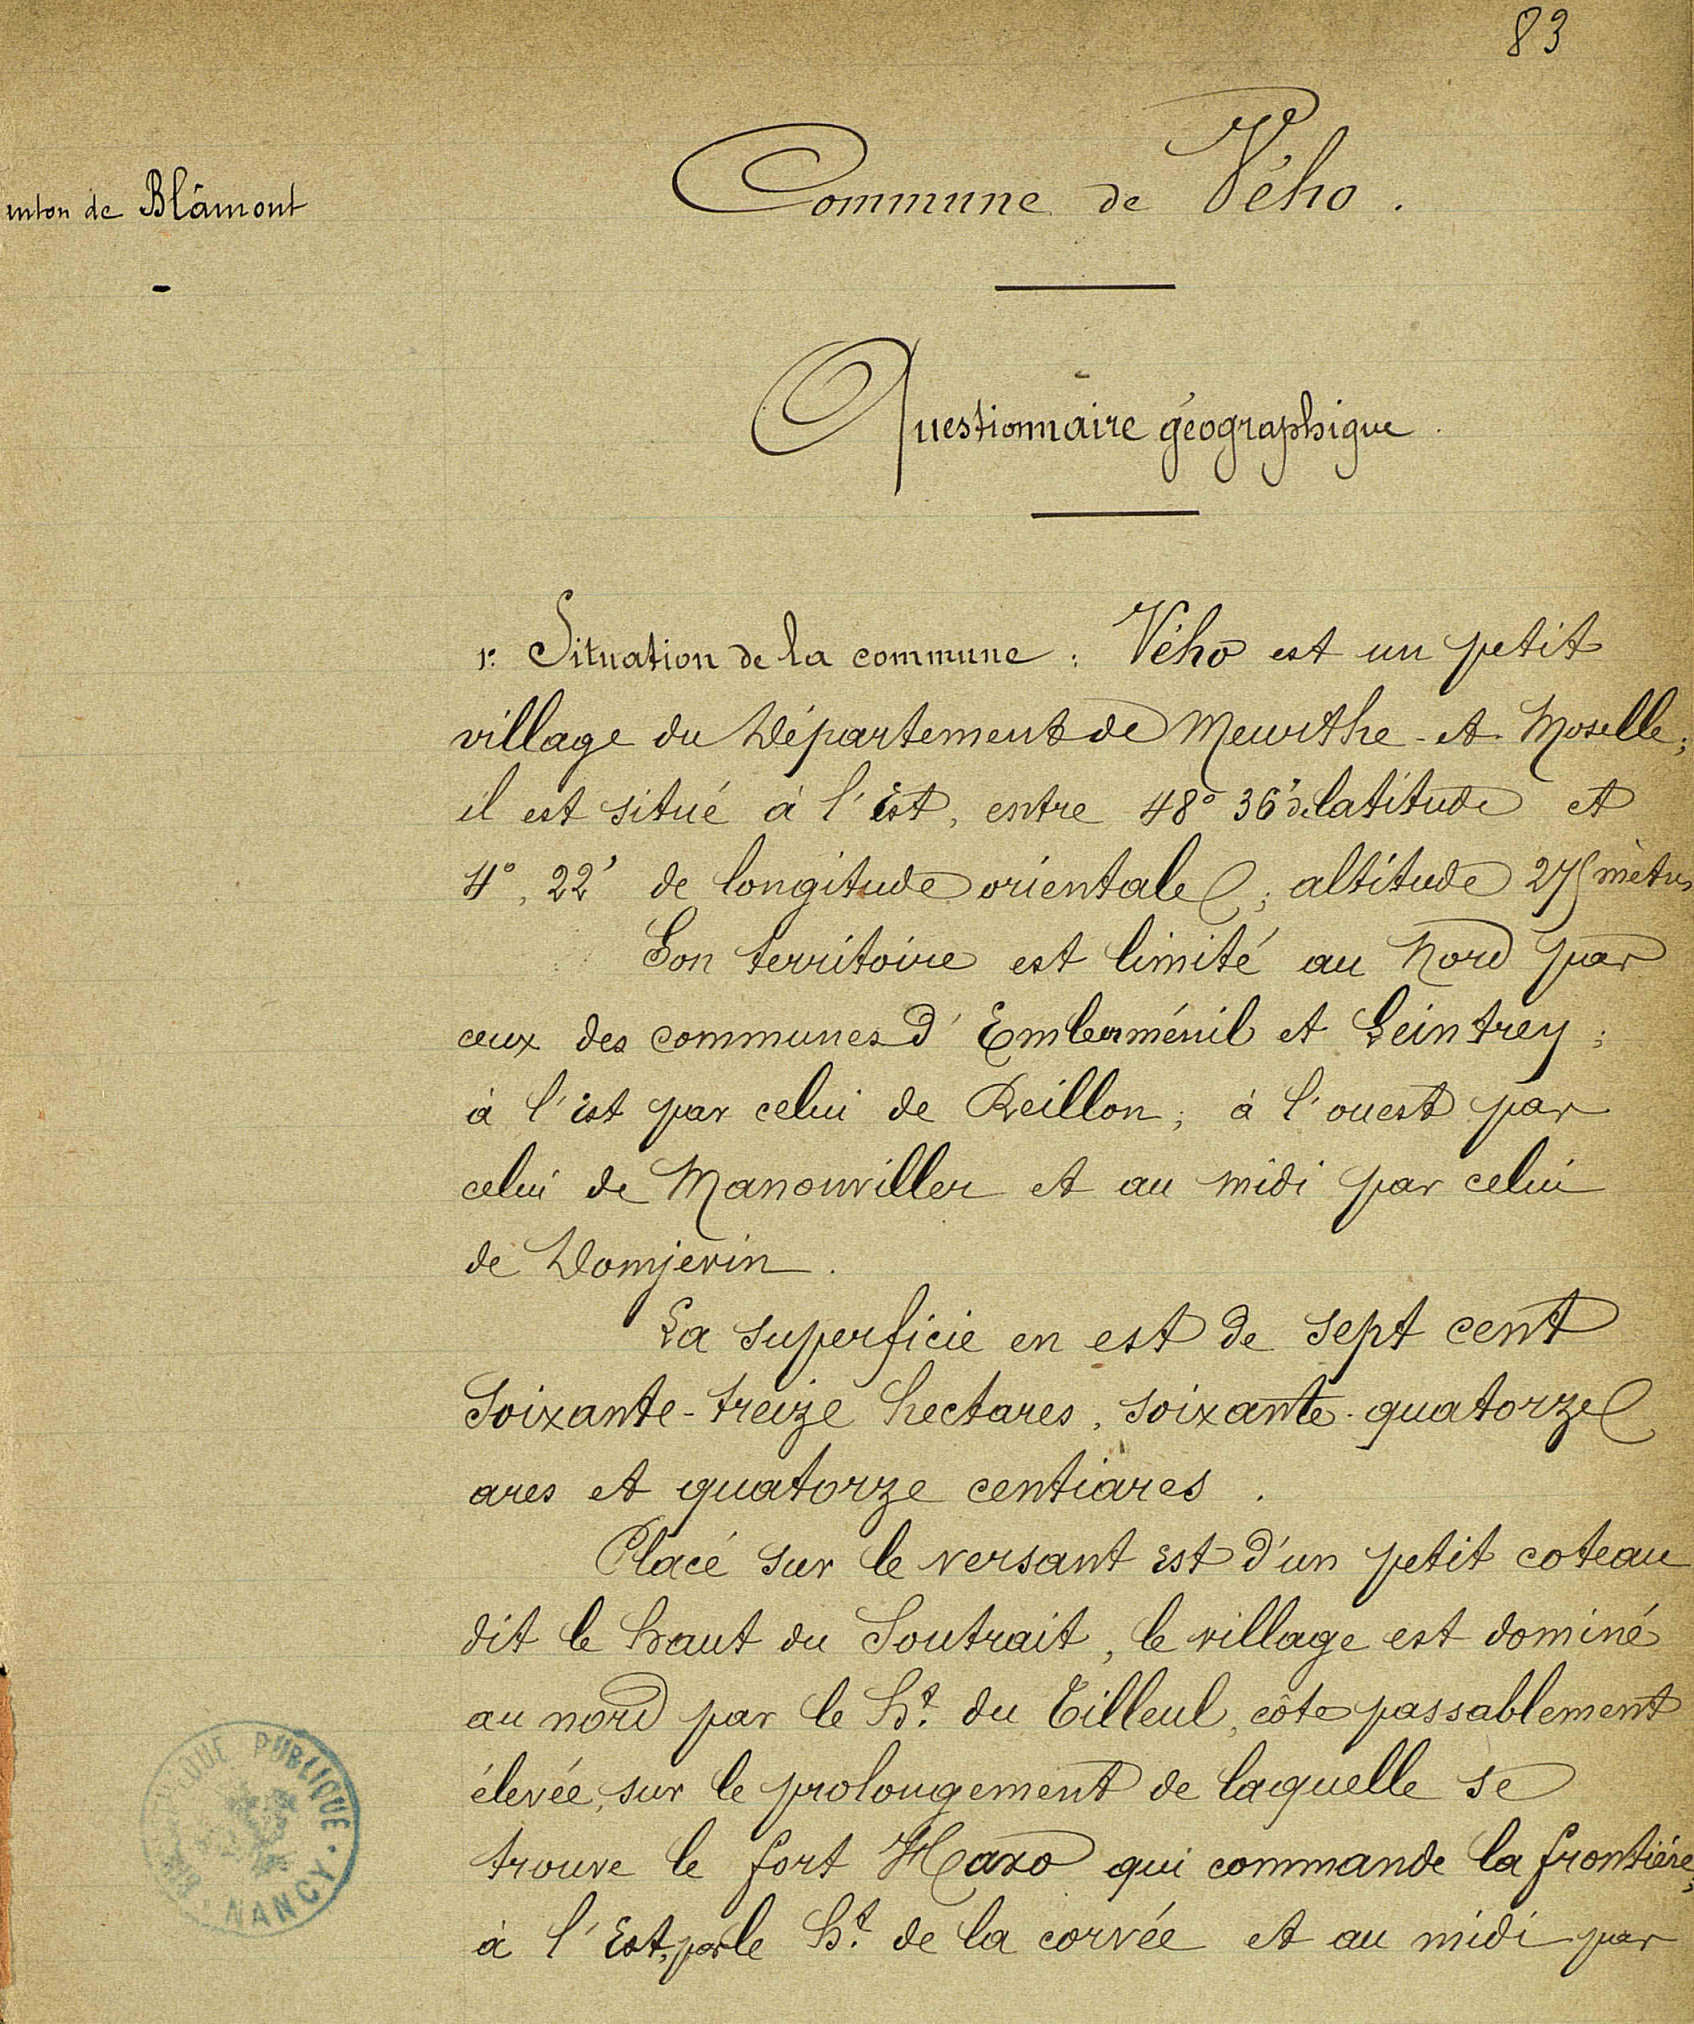 83
anton de Blâmont
Commune de Vého.
Questionnaire géographique.
1º. Situation de la commune : Vého est un petit
village du Département de Meurthe-et-Moselle ;
il est situé à l'Est, entre 48° 36' de latitude et
4°, 22' de longitude orientale ; altitude 275 mètres
Son territoire est limité au Nord par
ceux des communes d'Emberménil et Leintrey ;
à l'Est par celui de Reillon ; à l'ouest par
celui de Manonviller et au midi par celui
de Domjevin.
La superficie en est de sept cent
soixante-treize hectares, soixante-quatorze
ares et quatorze centiares.
Placé sur le versant Est d'un petit coteau
dit le haut du Soutrait, le village est dominé
au nord par le ht. du Tilleul, côte passablement
élevée, sur le prolongement de laquelle se
trouve le fort Haxo qui commande la frontière ;
à l'Est, par le ht. de la corvée et au midi par
BIBLIOTHÈQUE PUBLIQUE · NANCY ·